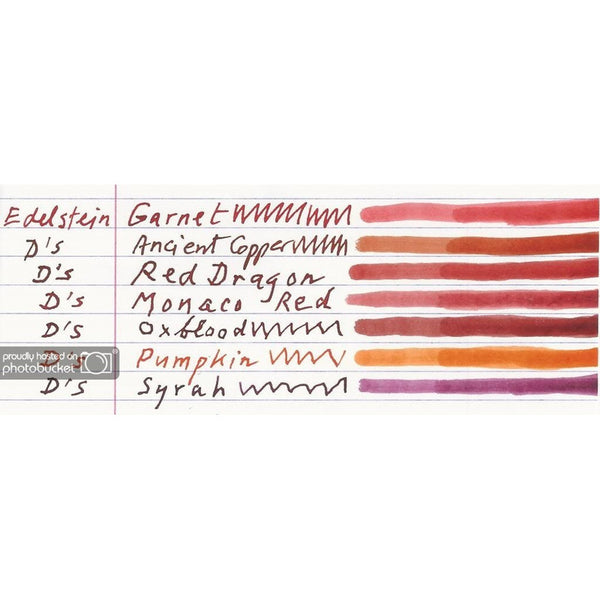 Edelstein Garnet
D's Ancient Copper
D's Red Dragon
D's Monaco Red
D's Oxblood
D's Pumpkin
D's Syrah
proudly hosted on
photobucket